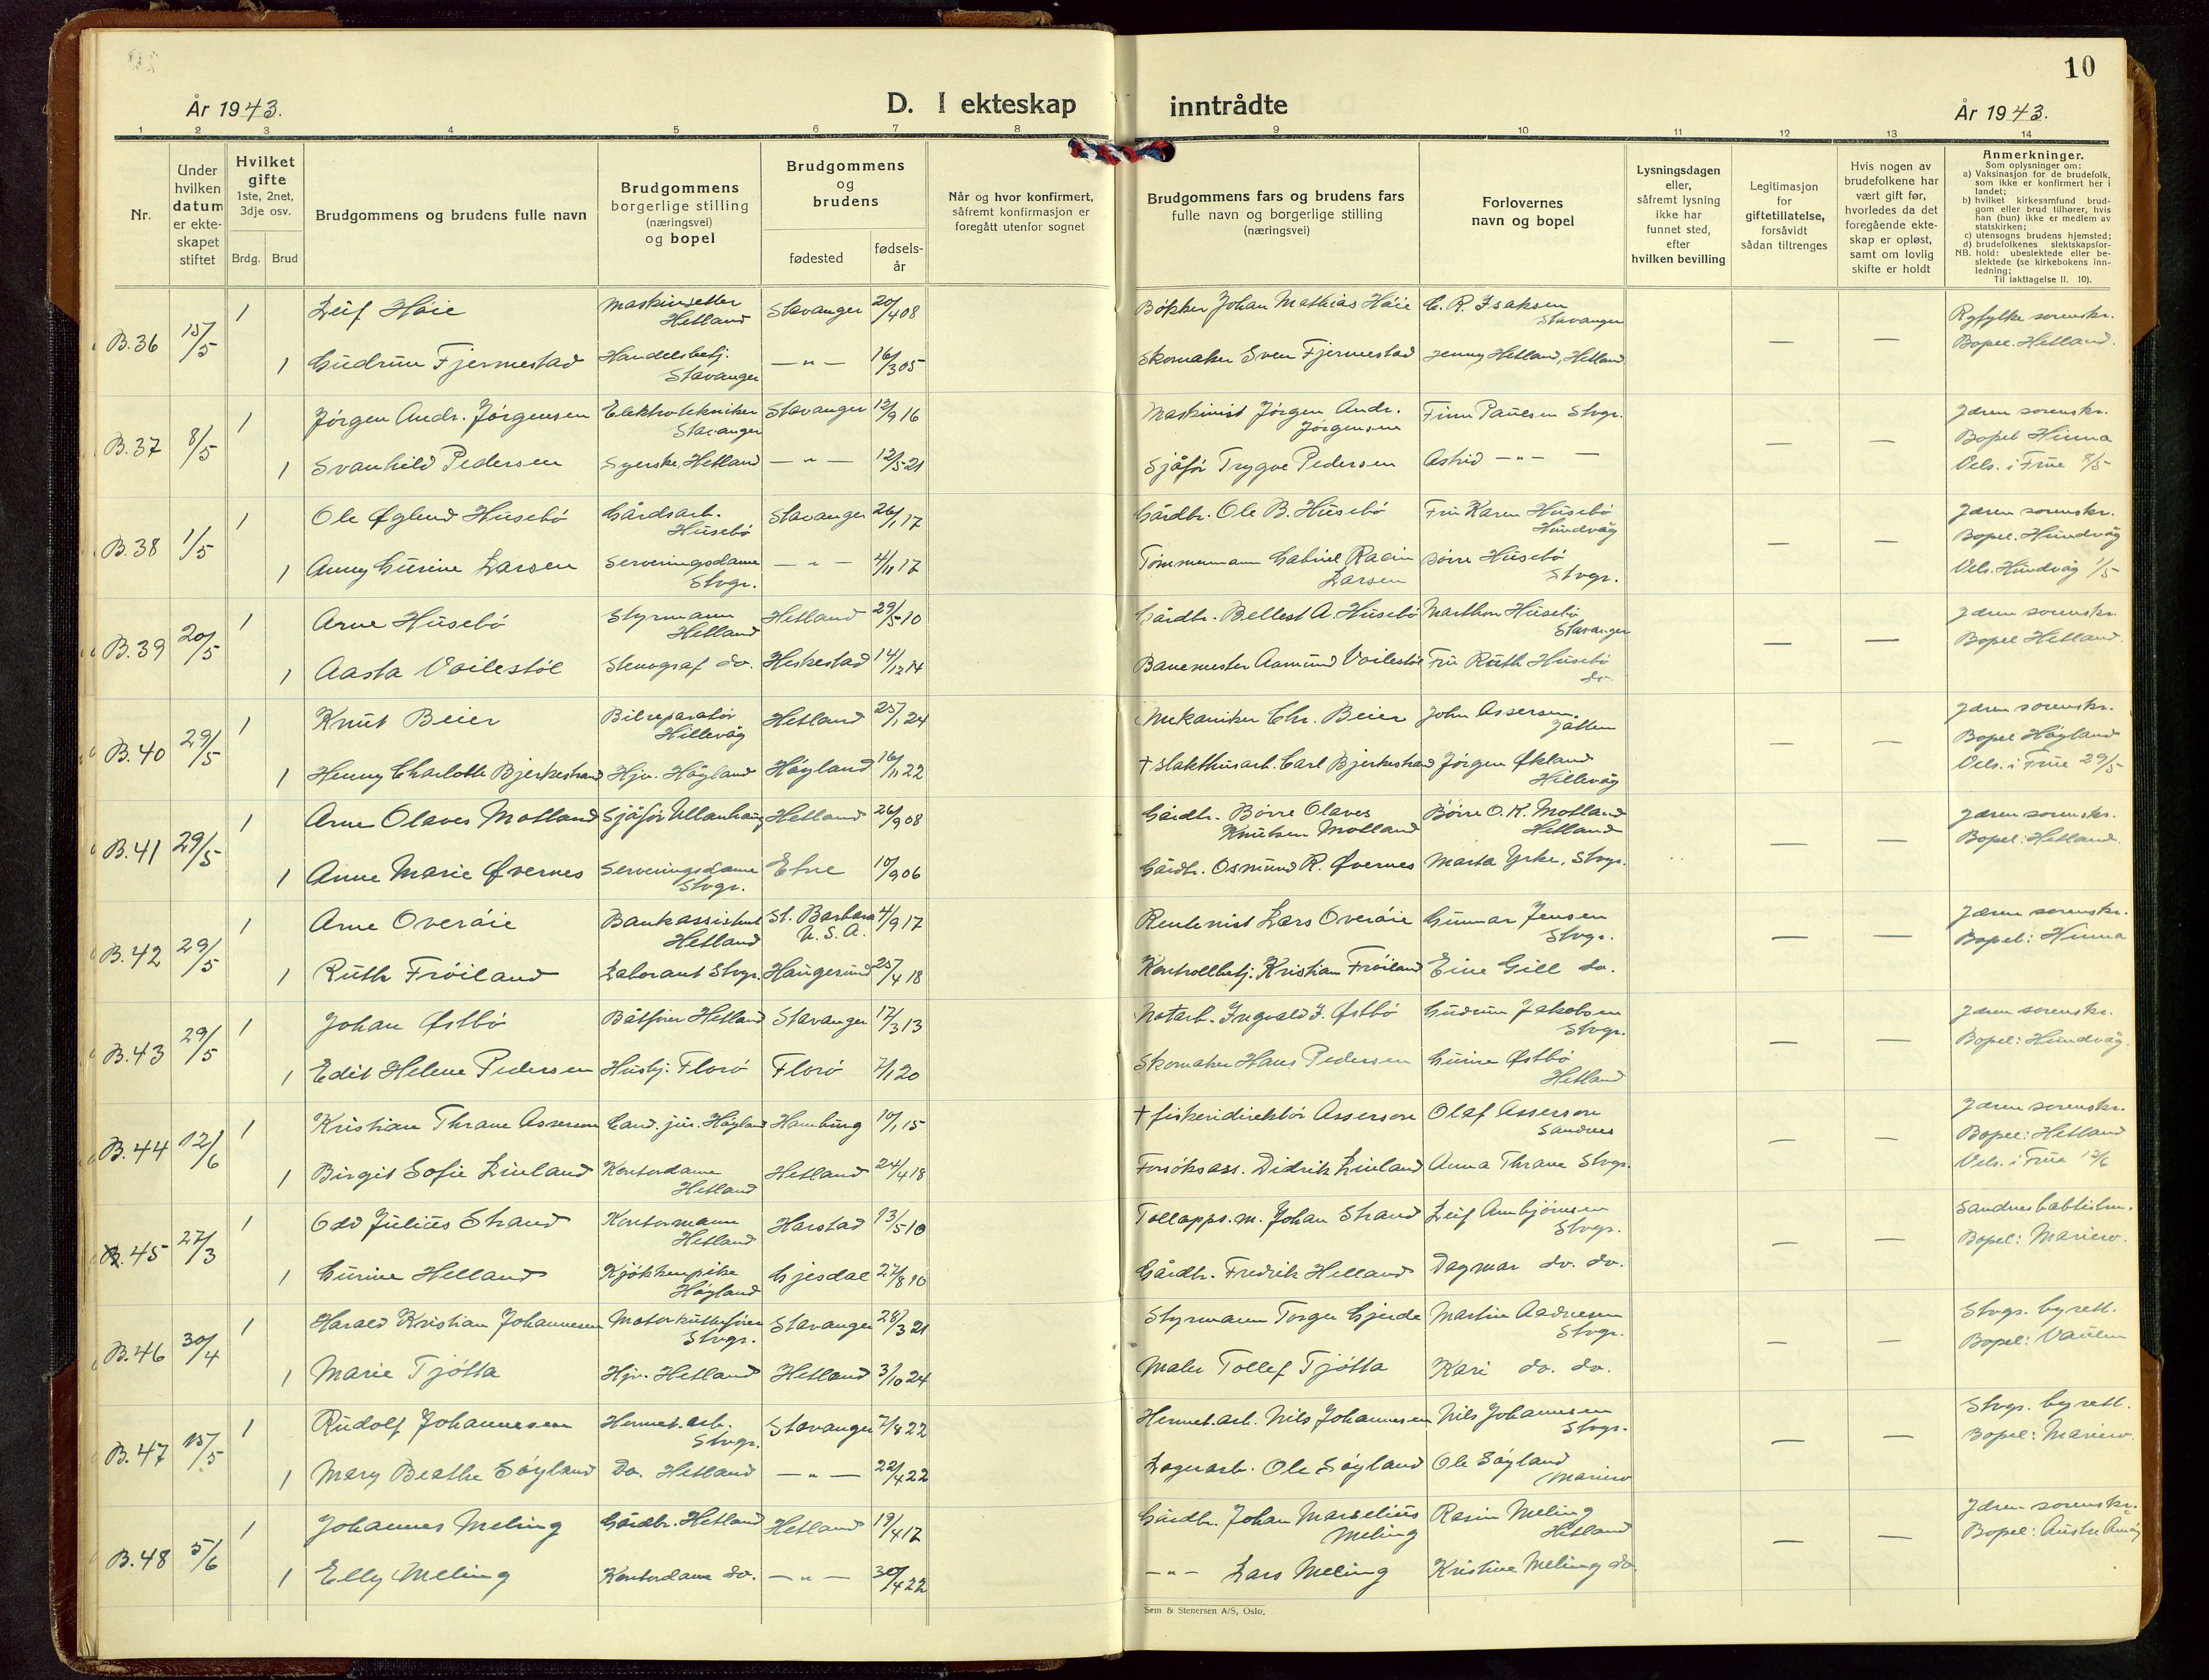 10
År 1943.
D. I ekteskap inntrådte
År 1943.
1 2 3 4 5 6 7 8 9 10 11 12 13 14
Nr.
Under hvilken datum er ekteskapet stiftet
Hvilket gifte
1ste, 2net, 3dje osv.
Brdg. Brud
Brudgommens og brudens fulle navn
Brudgommens borgerlige stilling (næringsvei) og bopel
Brudgommens og brudens
fødested
fødselsår
Når og hvor konfirmert, såfremt konfirmasjon er foregått utenfor sognet
Brudgommens fars og brudens fars fulle navn og borgerlige stilling (næringsvei)
Forlovernes navn og bopel
Lysningsdagen eller, såfremt lysning ikke har funnet sted, efter hvilken bevilling
Legitimasjon for giftetillatelse, forsåvidt sådan tiltrenges
Hvis nogen av brudefolkene har vært gift før, hvorledes da det foregående ekteskap er opløst, samt om lovlig skifte er holdt
Anmerkninger.
Som oplysninger om:
a) Vaksinasjon for de brudefolk, som ikke er konfirmert her i landet;
b) hvilket kirkesamfund brudgom eller brud tilhører, hvis han (hun) ikke er medlem av statskirken;
c) utensogns brudens hjemsted;
d) brudefolkenes slektskapsforhold: ubeslektede eller beslektede (se kirkebokens innledning;
NB. Til iakttagelse II. 10).
B.36 15/5 1 Leif Høie Maskinsetter Hetland Stavanger 20/4 08 Bøkker Johan Mathias Høie C. R. Isaksen Stavanger — — Ryfylke sorenskr.
1 Gudrun Fjermestad Handelsbetj. Stavanger —"— 16/3 05 Skomaker Sven Fjermestad Jenny Hetland, Hetland Bopel Hetland.
B.37 8/5 1 Jørgen Andr. Jørgensen Elektrotekniker Stavanger Stavanger 12/9 16 Maskinist Jørgen Andr. Jørgensen Finn Paulsen Stvgr. — — Jæren sorenskr.
1 Svanhild Pedersen Syerske, Hetland —"— 12/5 21 Sjåfør Trygve Pedersen Astrid —"— — Bopel Hinna
Vels. i Frue 8/5
B.38 1/5 1 Ole Øglend Husebø Gårdsarb. Husebø Stavanger 26/1 17 Gårdbr. Ole B. Husebø Fru Karen Husebø Hundvåg — — Jæren sorenskr.
1 Anny Gurine Larsen Serveringsdame Stvgr. —"— 4/11 17 Tømmermann Gabriel Larsen Børre Husebø Stvgr. Bopel. Hundvåg
Vels. Hundvåg 1/5
B.39 20/5 1 Arne Husebø Styrmann Hetland Hetland 29/5 10 Gårdbr. Bellest A. Husebø Marthon Husebø Stavanger — — Jæren sorenskr.
1 Aasta Voilestøl Stenograf do. Heskestad 14/12 14 Banemester Aamund Voilestøl Fru Ruth Husebø do. Bopel Hetland.
B.40 29/5 1 Knut Beier Bilreparatør Hillevåg Hetland 25/1 24 Mekaniker Chr. Beier John Assersen, Jåtten — — Jæren sorenskr.
1 Henny Charlotte Bjerkestrand Hjv. Høyland Høyland 16/11 22 † Slakthusarb. Carl Bjerkestrand Jørgen Økland Hillevåg Bopel Høyland
Vels. i Frue 29/5
B.41 29/5 1 Arne Olaves Motland Sjåfør Ullanhaug Hetland 26/9 08 Gårdbr. Børre Olaves Knutsen Motland Børre O. K. Motland Hetland — — Jæren sorenskr.
1 Anne Marie Øvernes Serveringsdame Stvgr. Etne 10/9 06 Gårdbr. Osmund R. Øvernes Marta Yrke, Stvgr. Bopel: Hetland.
B.42 29/5 1 Arne Overøie Bankassistent Hetland St. Barbara U.S.A. 4/9 17 Rentenist Lars Overøie Gunnar Jensen Stvgr. — — Jæren sorenskr.
1 Ruth Frøiland Laborant Stvgr. Haugesund 25/4 18 Kontrollbetj. Kristian Frøiland Eine Gill do. Bopel: Hinna
B.43 29/5 1 Johan Østbø Båtfører Hetland Stavanger 17/3 13 Notarb. Ingvald J. Østbø Gudrun Jakobsen Stvgr. — — Jæren sorenskr.
1 Edit Helene Pedersen Husbj. Florø Florø 7/1 20 Skomaker Hans Pedersen Gurine Østbø Hetland Bopel: Hundvåg.
B.44 12/6 1 Kristian Thrane Asserson Cand. jur. Høyland Hamburg 10/1 15 † fiskeridirektør Asserson Olaf Asserson Sandnes — — Jæren sorenskr.
1 Birgit Sofie Linland Kontordame Hetland Hetland 24/4 18 Forsøksass. Didrik Linland Anna Thrane Stvgr. Bopel: Hetland
Vels. i Frue 12/6
B.45 27/3 1 Odd Julius Strand Kontormann Hetland Harstad 13/5 10 Tollopps.m. Johan Strand Leif Annbjørnsen Stvgr. — — Sandnes babtistm.
1 Gurine Helland Kjøkkenpike Høyland Gjesdal 27/8 10 Gårdbr. Fredrik Helland Dagmar do. do. Bopel: Mariero.
B.46 30/4 1 Harald Kristian Johannesen Motorkutterfører Stvgr. Stavanger 28/3 21 Styrmann Torger Gjerde Martin Aadnesen Stvgr. — — Stvgr. byrett.
1 Marie Tjøtta Hjv. Hetland Hetland 3/10 24 Maler Tollef Tjøtta Kari do. do. Bopel: Vaulen
B.47 15/5 1 Rudolf Johannesen Hermet.arb. Stvgr. Stavanger 7/8 22 Hermet.arb. Nils Johannesen Nils Johannesen Stvgr. — — Stvgr. byrett.
1 Mary Beathe Søyland Do. Hetland —"— 22/4 22 Lagerarb. Ole Søyland Ole Søyland Mariero Bopel: Mariero.
B.48 5/6 1 Johannes Meling Gårdbr. Hetland Hetland 19/4 17 Gårdbr. Johan Marselius Meling Rasin Meling Hetland — — Jæren sorenskr.
1 Elly Meling Kontordame do. —"— 30/4 22 —"— Lars Meling Kristine Meling do. Bopel: Austre Åmøy
Sem & Stenersen A/S, Oslo.